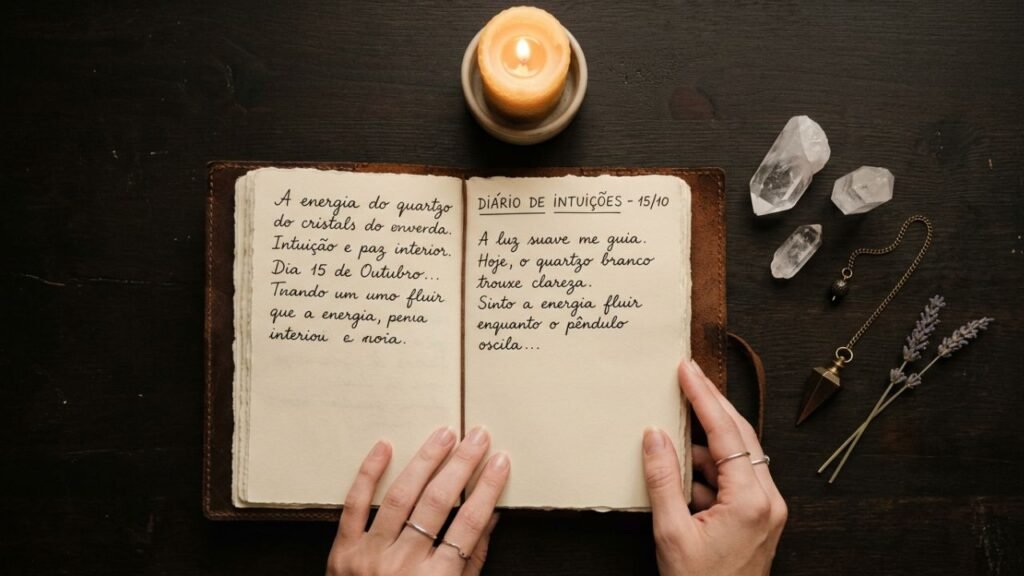 A energia do quartzo
do cristals do enverda.
Intuição e paz interior.
Dia 15 de Outubro...
Tuando um umo fluir
que a energia, penia
interiou e noia.
DIÁRIO DE INTUIÇÕES - 15/10
A luz suave me guia.
Hoje, o quartzo branco
trouxe clareza.
Sinto a energia fluir
enquanto o pêndulo
oscila...